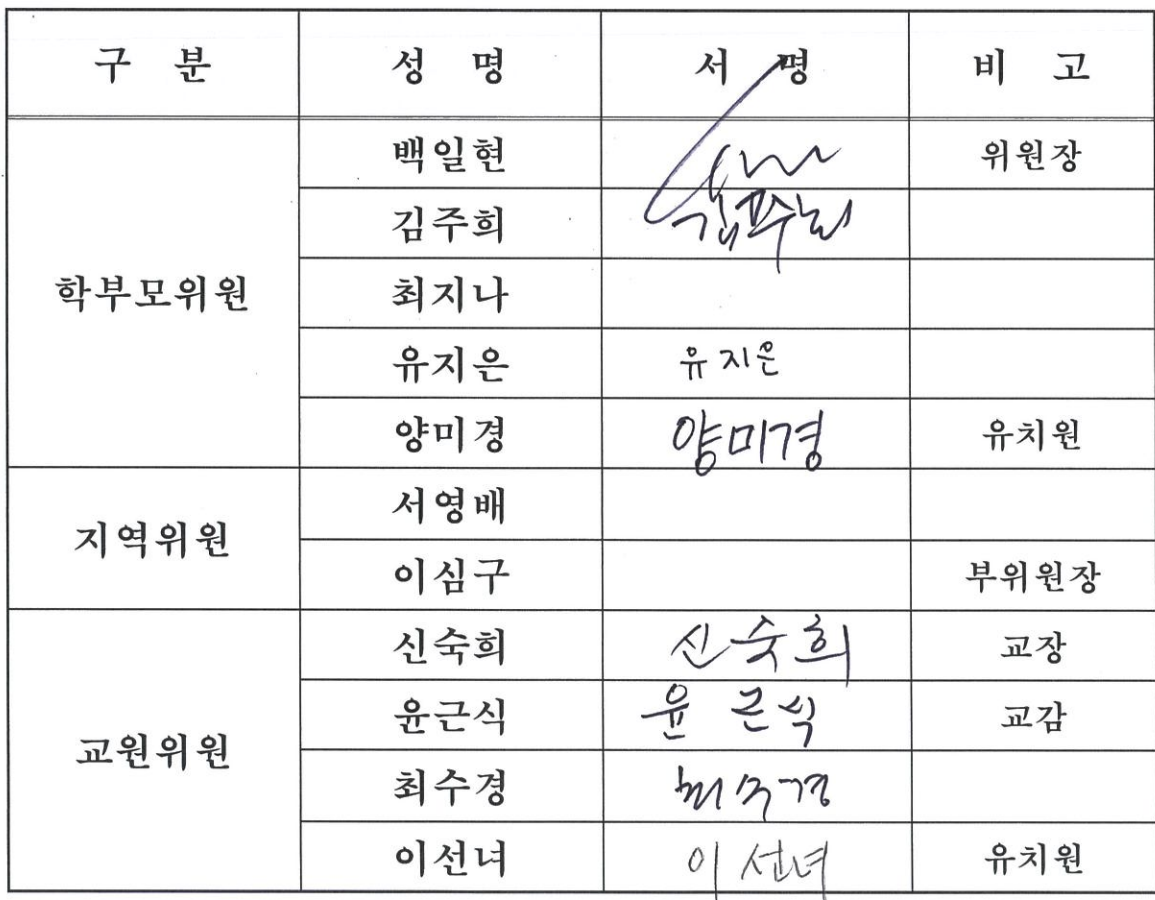 구 분 성 명 서 명 비 고
학부모위원 백일현 위원장
김주희 김주희
최지나
유지은 유지은
양미경 양미경 유치원
지역위원 서영배
이심구 부위원장
교원위원 신숙희 신숙희 교장
윤근식 윤근식 교감
최수경 최수경
이선녀 이선녀 유치원